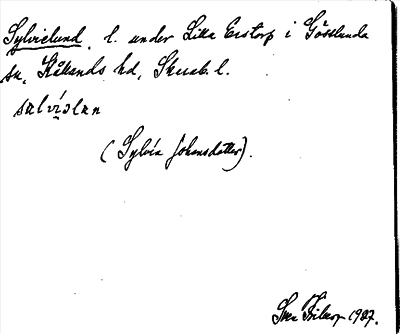 Sylvielund, l. under Lilla Eestorp i Gösslunda
sn, Kållands hd, Skarab. l.
salvíolan
(Sylvia Johansdotter).
1927.